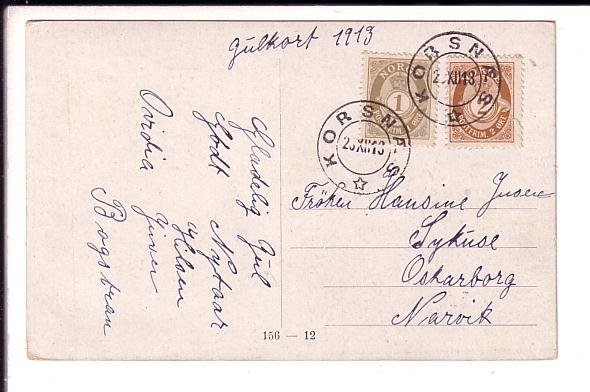 gulkort 1913
NORGE
1
FRIM.
2
POSTFRIM. 2 ØRE
KORSNES
2 XII 13
KORSNES
23 XII 13
Frøken Hansine Juser
Sykuse
Oskarborg
Narvik
Gladelig Jul
Godt Nytaar
Hilsen
Ovidia
Bogstran
156 — 12